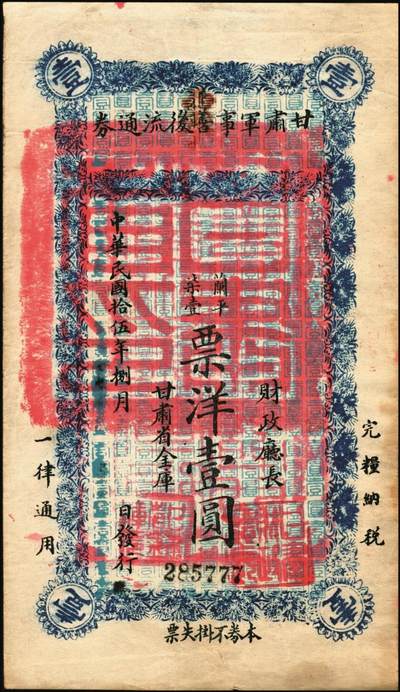 壹
壹
甘肅軍事善後流通券
完糧納稅
財政廳長
蘭平
柒壹
票洋壹圓
甘肅省金庫
中華民國拾伍年捌月
日發行
一律通用
285777
壹
壹
本券不掛失票